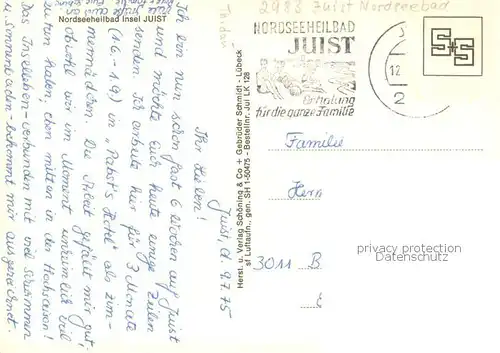 Nordseeheilbad Insel JUIST
Juist, d. 9.7.75
Ihr Lieben!
Ich bin nun schon fast 6 Wochen auf Juist
und möchte Euch heute einige Zeilen
senden. Ich arbeite hier für 3 Monate
(1.6. - 1.9.) in "Pabst's Hotel" als Zim-
mermädchen. Die Arbeit gefällt mir gut,
obwohl wir im Moment unheimlich viel
zu tun haben, eben mitten in der Hochsaison!
Das Inselleben - verbunden mit viel Schwimmen
u. Sonnenbaden - bekommt mir ausgezeichnet.
Herst. u. Verlag Schöning & Co + Gebrüder Schmidt - Lübeck
sf Luftaufn., gen. SH 1-50475 - Bestellnr. Jui LK 128
2983 Juist Nordseebad
NORDSEEHEILBAD
JUIST
Erholung
für die ganze Familie
12
2
S+S
Familie
Herrn
3011 B
privacy protection
Datenschutz